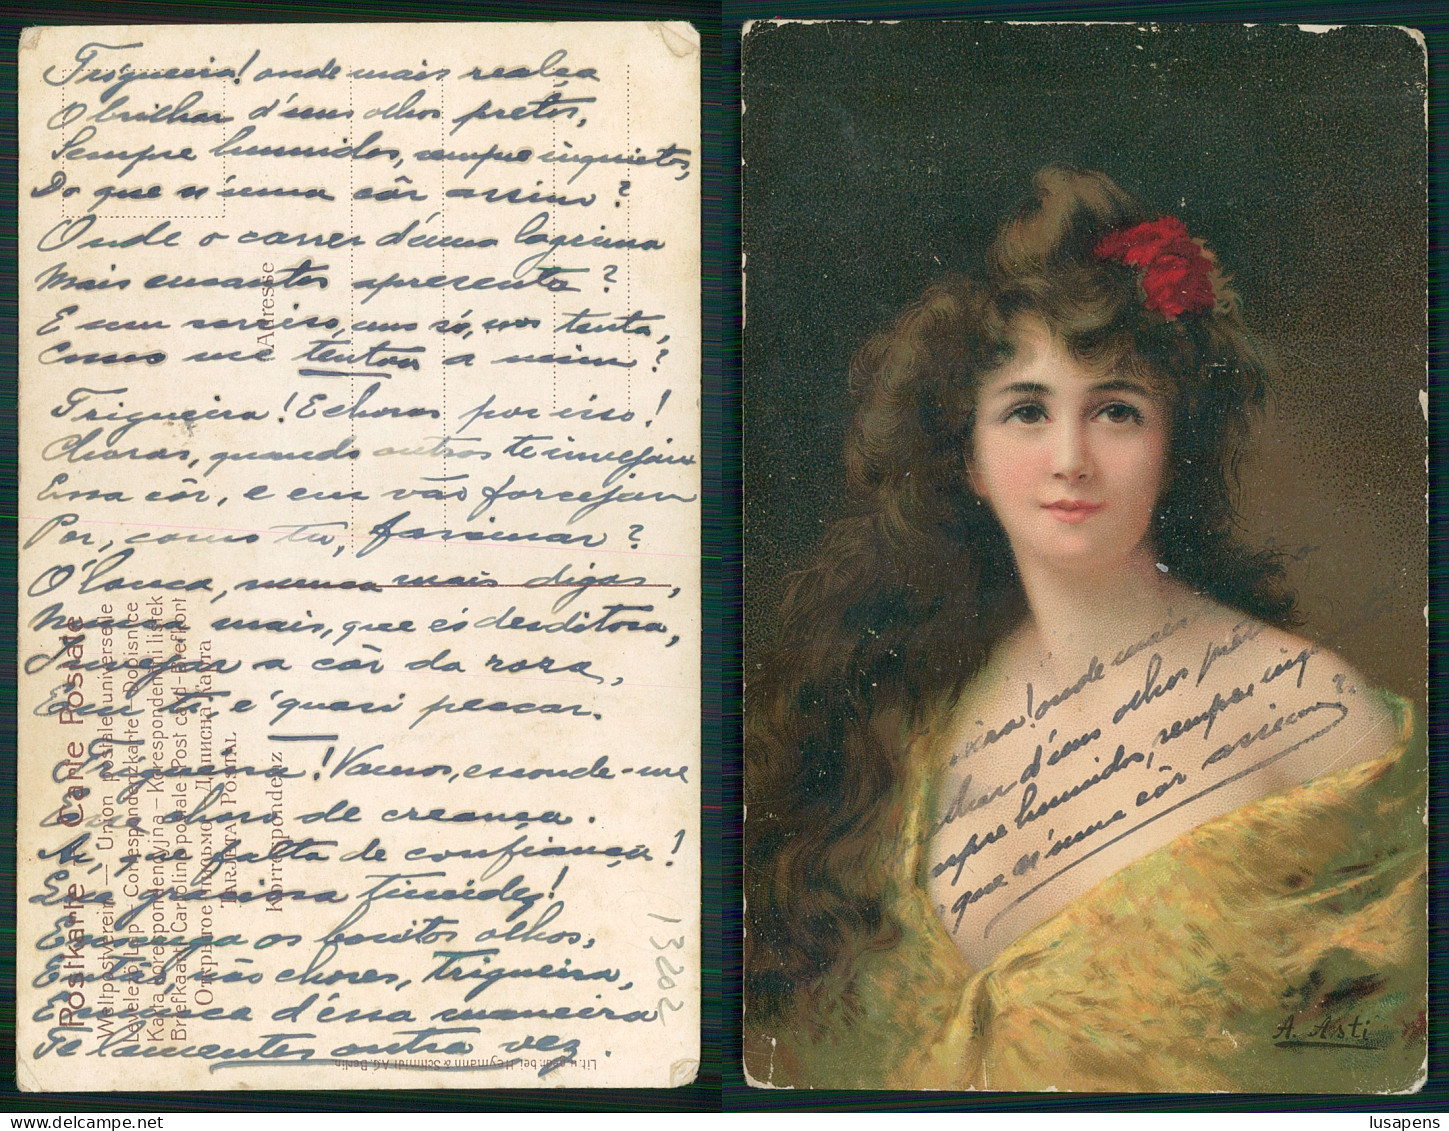 Trigueira! onde mais realça
O brilhar d'uns olhos pretos,
Sempre humidos, sempre inquietos,
Do que n'uma côr assim?
Onde o correr d'uma lagrima
Mais encantos apresenta?
E um sorriso, um só, nos tenta,
Como me tentou a mim?
Trigueira! E choras por isso!
Choras, quando outros te invejam
Essa côr, e em vão forcejam
Por, como tu, fascinar?
O'louca, nunca mais digas,
Nunca mais, que és desditosa,
Invejar a côr da rosa,
Em ti, é quasi peccar.
Trigueira! Vamos, esconde-me
Esse choro de creança.
Ai, que falta de confiança!
Que graciosa timidez!
Enxuga os bonitos olhos,
Então, não chores, Trigueira,
E nunca d'essa maneira
Te lamentes outra vez.
Adresse
Postkarte – Carte Postale
Weltpostverein – Union postale universelle
Levelező-Lap – Correspondenzkarte – Dopisnice
Karta korespondencyjna – Korespondenčni listek
Briefkaart Cartolina postale Post card – Brefkort
Открытое письмо – Дописна карта
TARJETA POSTAL
Korrespondenz
13202
Lit. u. gedr. bei Heymann & Schmidt A.G. Berlin
onde mais
d'uns olhos
humidos, sempre
que n'uma côr assim ?
A. Asti
lusapens